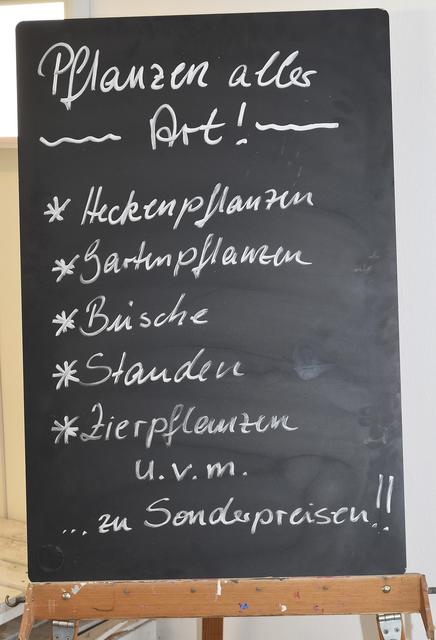 Pflanzen aller
~ Art! ~
* Heckenpflanzen
* Gartenpflanzen
* Büsche
* Stauden
* Zierpflanzen
u.v.m.
... zu Sonderpreisen!!